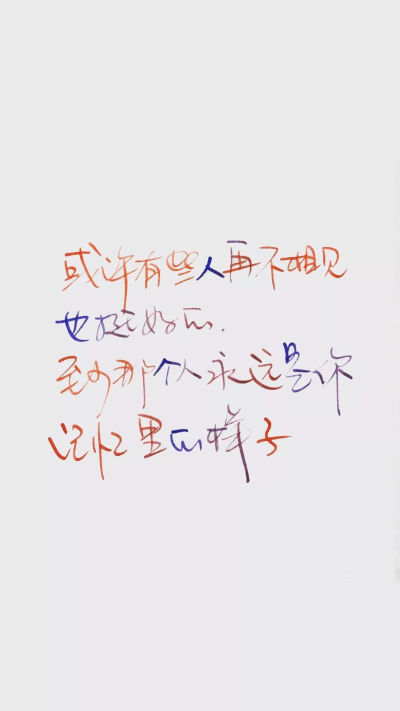 或许有些人再不相见
也挺好的.
至少那个人永远是你
记忆里的样子